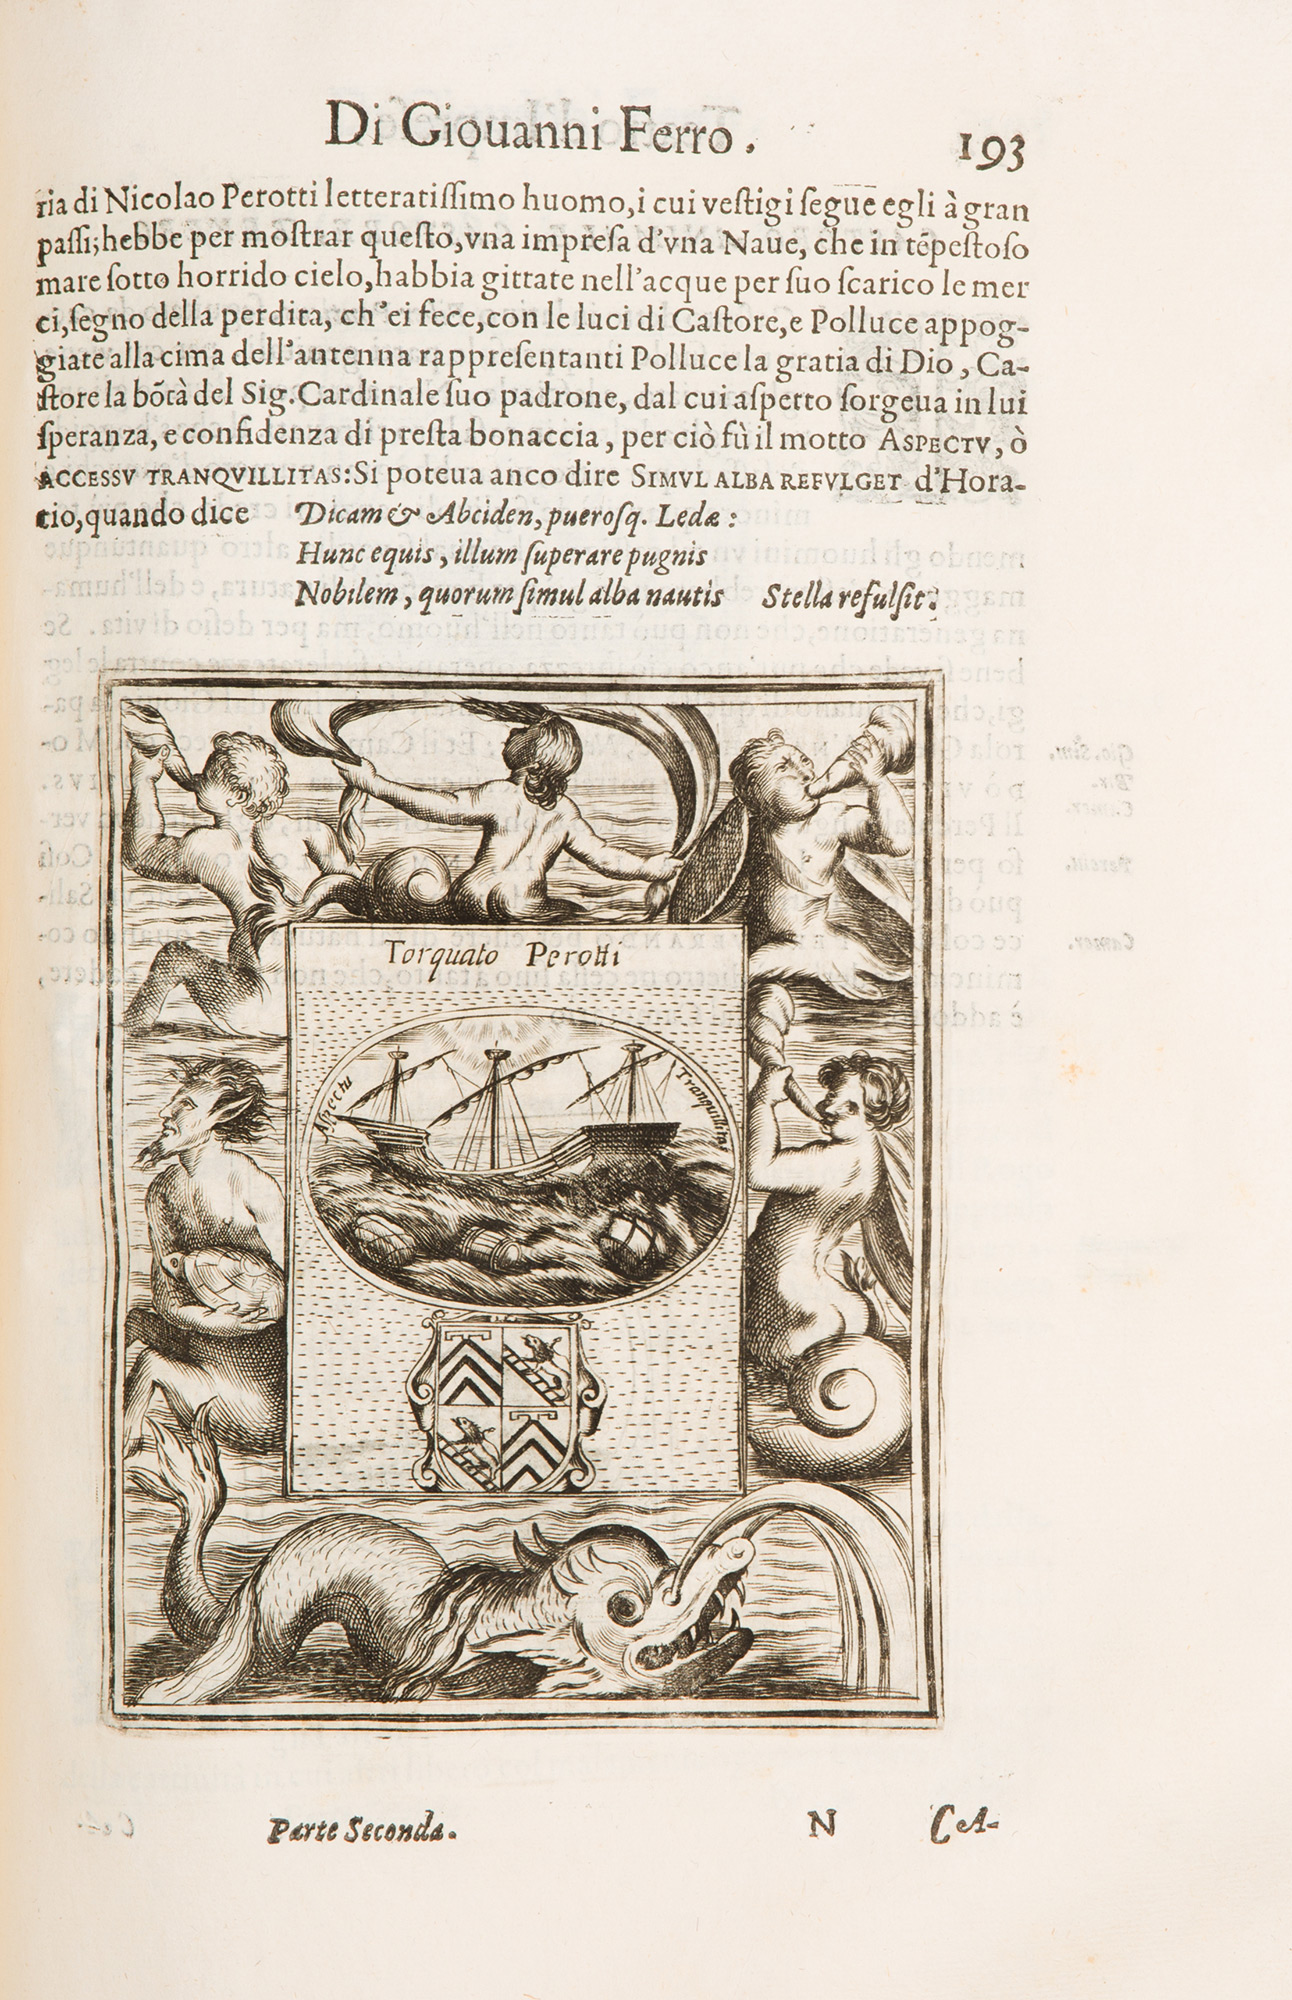 Di Giouanni Ferro. 193
ria di Nicolao Perotti letteratiſſimo huomo, i cui veſtigi ſegue egli à gran
paſſi; hebbe per moſtrar queſto, vna impreſa d'vna Naue, che in tēpeſtoſo
mare ſotto horrido cielo, habbia gittate nell'acque per ſuo ſcarico le mer
ci, ſegno della perdita, ch'ei fece, con le luci di Caſtore, e Polluce appog-
giate alla cima dell'antenna rappreſentanti Polluce la gratia di Dio, Ca-
ſtore la bōtà del Sig. Cardinale ſuo padrone, dal cui aſpetto ſorgeua in lui
ſperanza, e confidenza di preſta bonaccia, per ciò fù il motto ASPECTV, ò
ACCESSV TRANQVILLITAS: Si poteua anco dire SIMVL ALBA REFVLGET d'Hora-
tio, quando dice Dicam & Abciden, pueroſq. Ledæ:
Hunc equis, illum ſuperare pugnis
Nobilem, quorum ſimul alba nautis Stella refulſit.
Torquato Perotti
Aſpectu
Tranquillitas
Parte Seconda. N Ca-